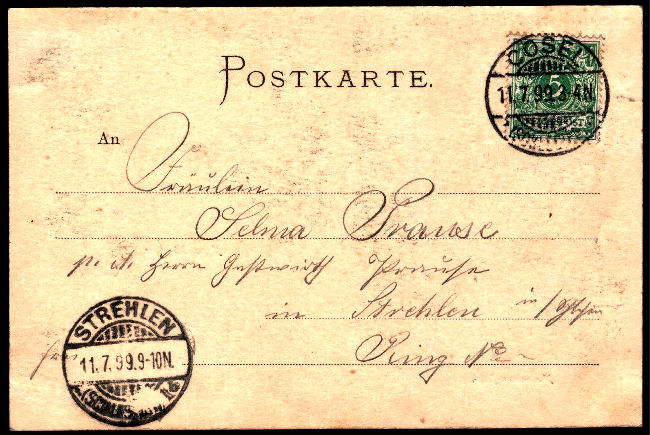 POSTKARTE.
COSEL
5
11.7.99.3-4N.
An
Fräulein
Selma Prause
Herrn Gastwirth Prause
in Strehlen in
Ring No
STREHLEN
11.7.99.9-10N.